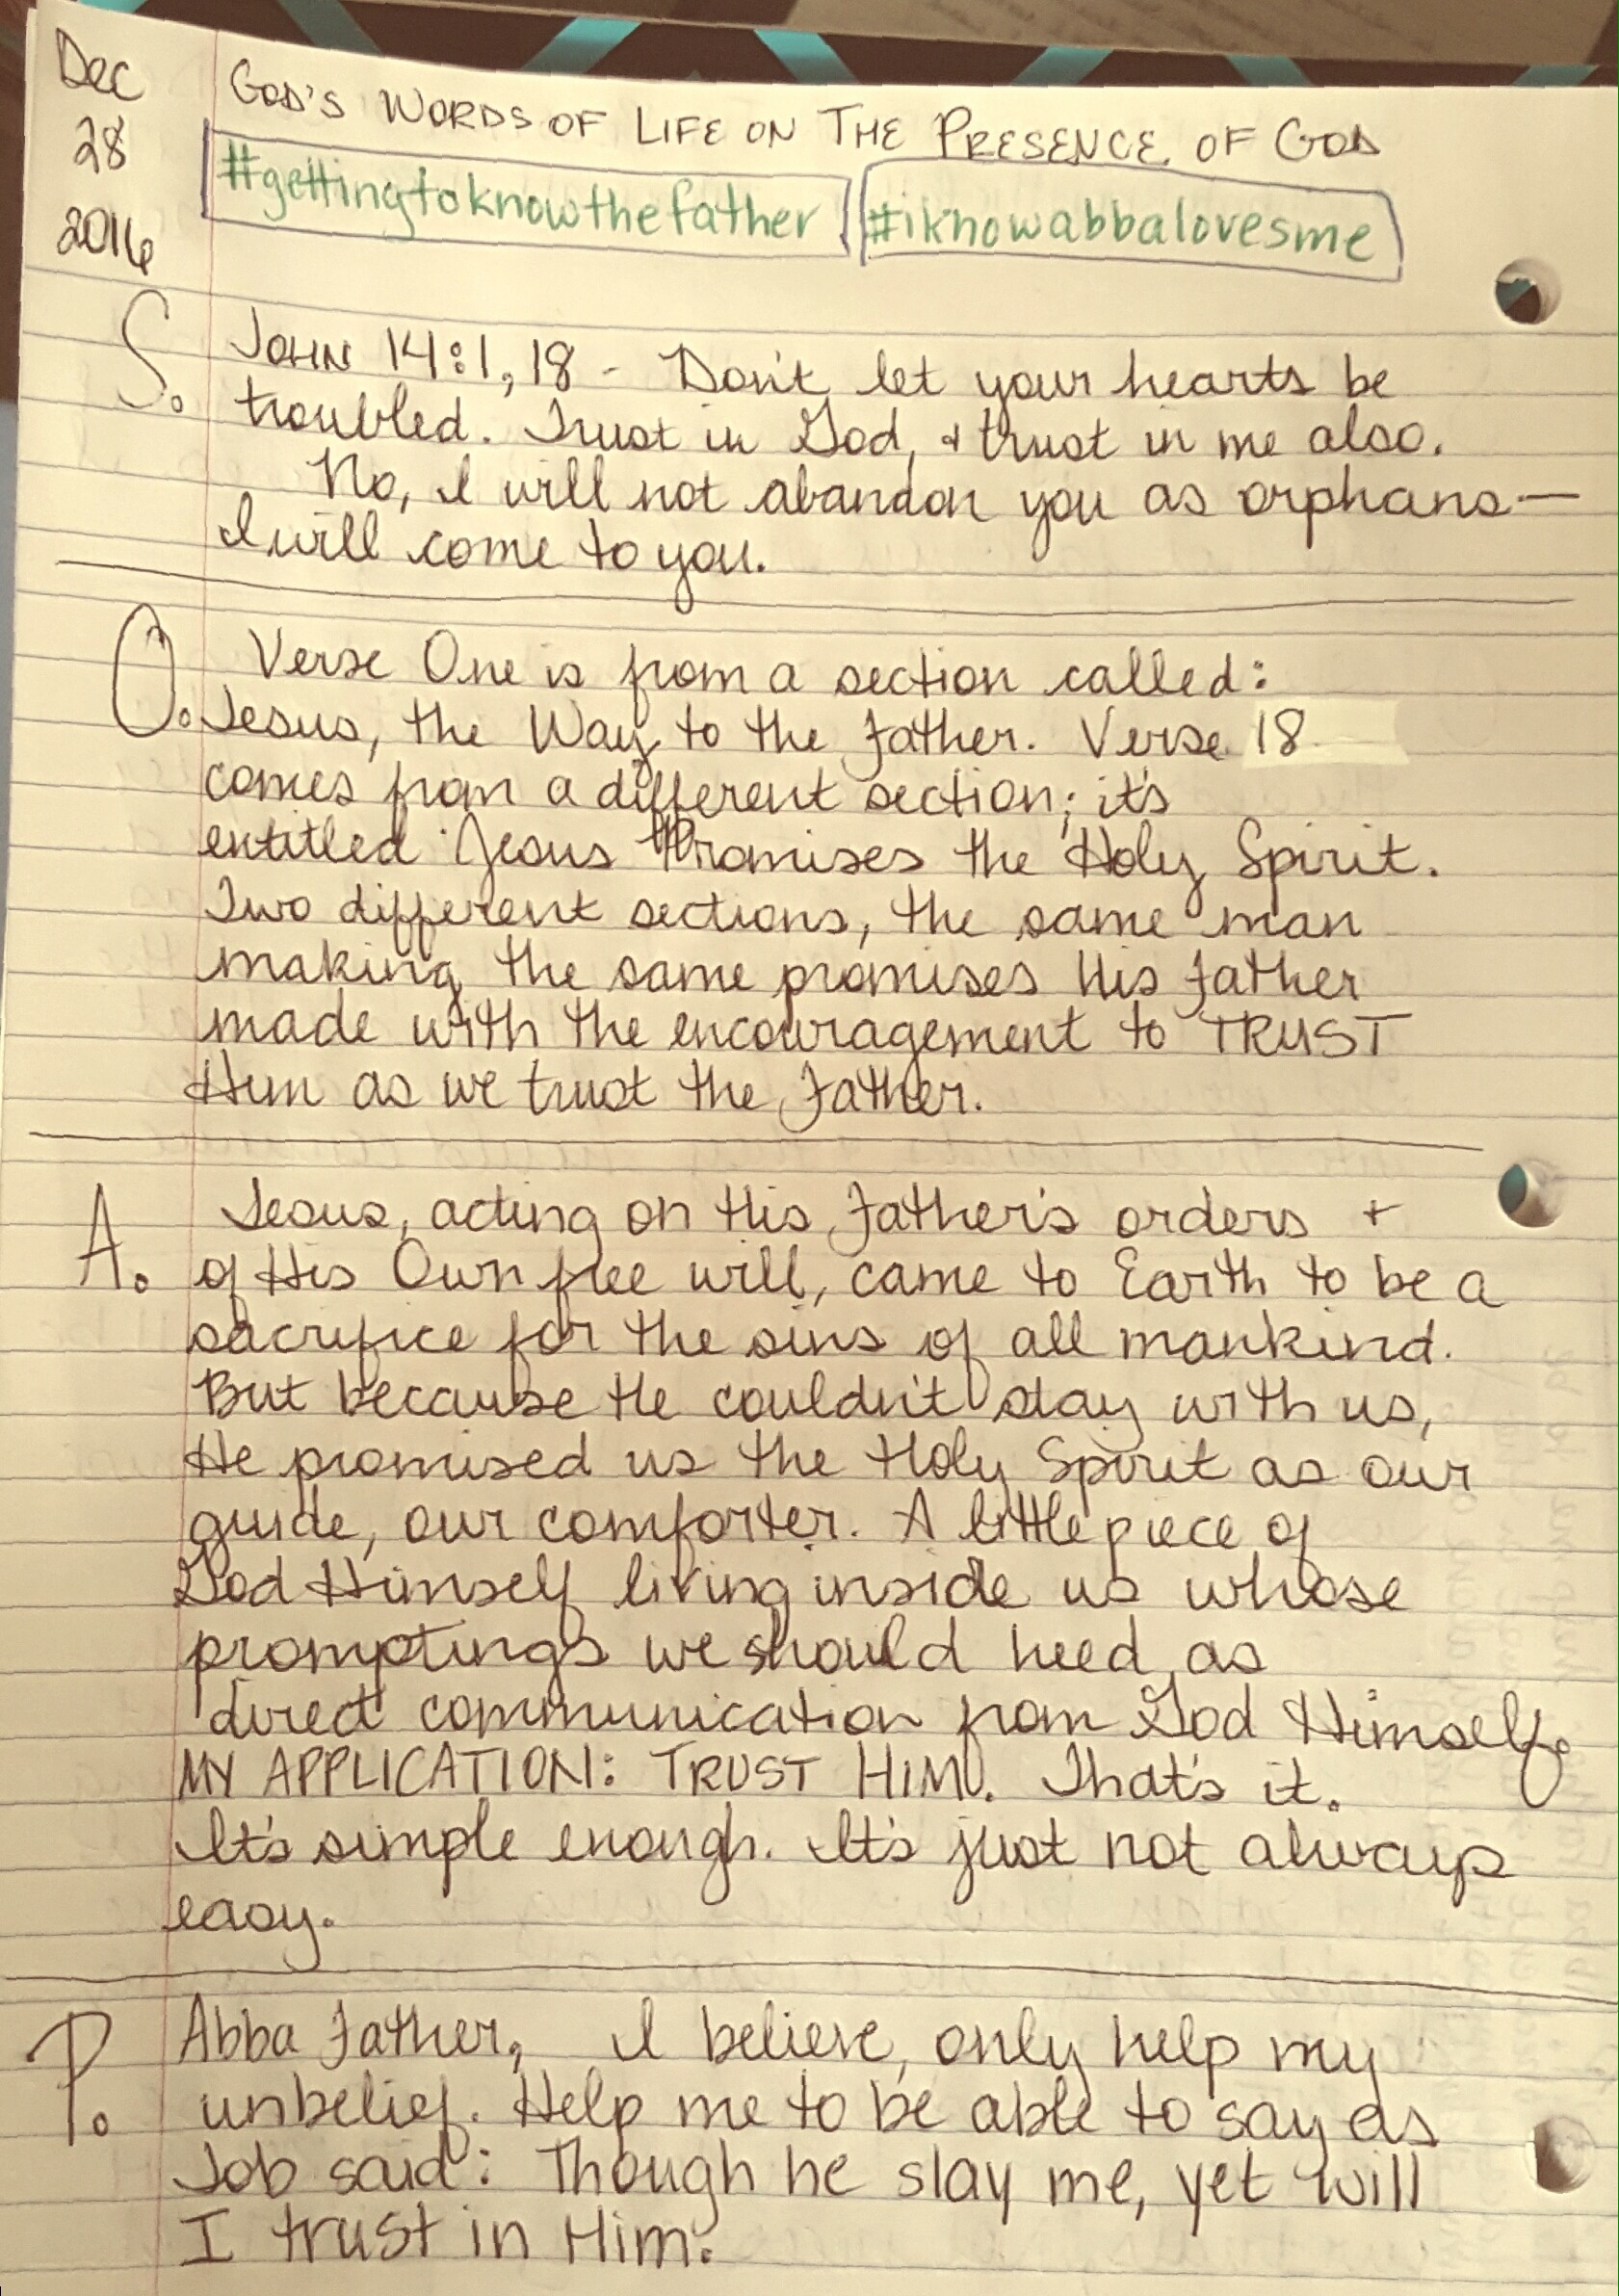 Dec
28
2016
GOD'S WORDS OF LIFE ON THE PRESENCE OF GOD
#gettingtoknowthefather #iknowabbalovesme
S. JOHN 14:1, 18 - Don't let your hearts be
troubled. Trust in God, & trust in me also.
No, I will not abandon you as orphans—
I will come to you.
O. Verse One is from a section called:
Jesus, the Way to the Father. Verse 18
comes from a different section; it's
entitled Jesus Promises the Holy Spirit.
Two different sections, the same man
making the same promises His Father
made with the encouragement to TRUST
Him as we trust the Father.
A. Jesus, acting on His Father's orders +
of His Own free will, came to Earth to be a
sacrifice for the sins of all mankind.
But because He couldn't stay with us,
He promised us the Holy Spirit as our
guide, our comforter. A little piece of
God Himself living inside us whose
promptings we should heed as
direct communication from God Himself.
MY APPLICATION: TRUST HIM. That's it.
It's simple enough. It's just not always
easy.
P. Abba Father, I believe, only help my
unbelief. Help me to be able to say as
Job said: Though he slay me, yet will
I trust in Him.